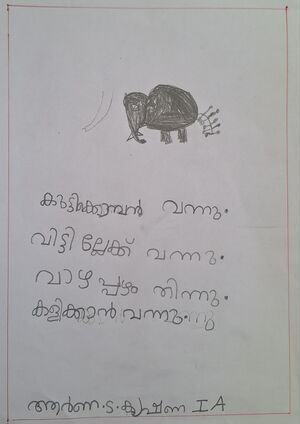 കുട്ടിക്കൊമ്പൻ വന്നു.
വിട്ടില്ലേക്ക് വന്നു.
വാഴപ്പഴം തിന്നു.
കളിക്കാൻ വന്നു.
ആർണ.ട.കൃഷണ I A